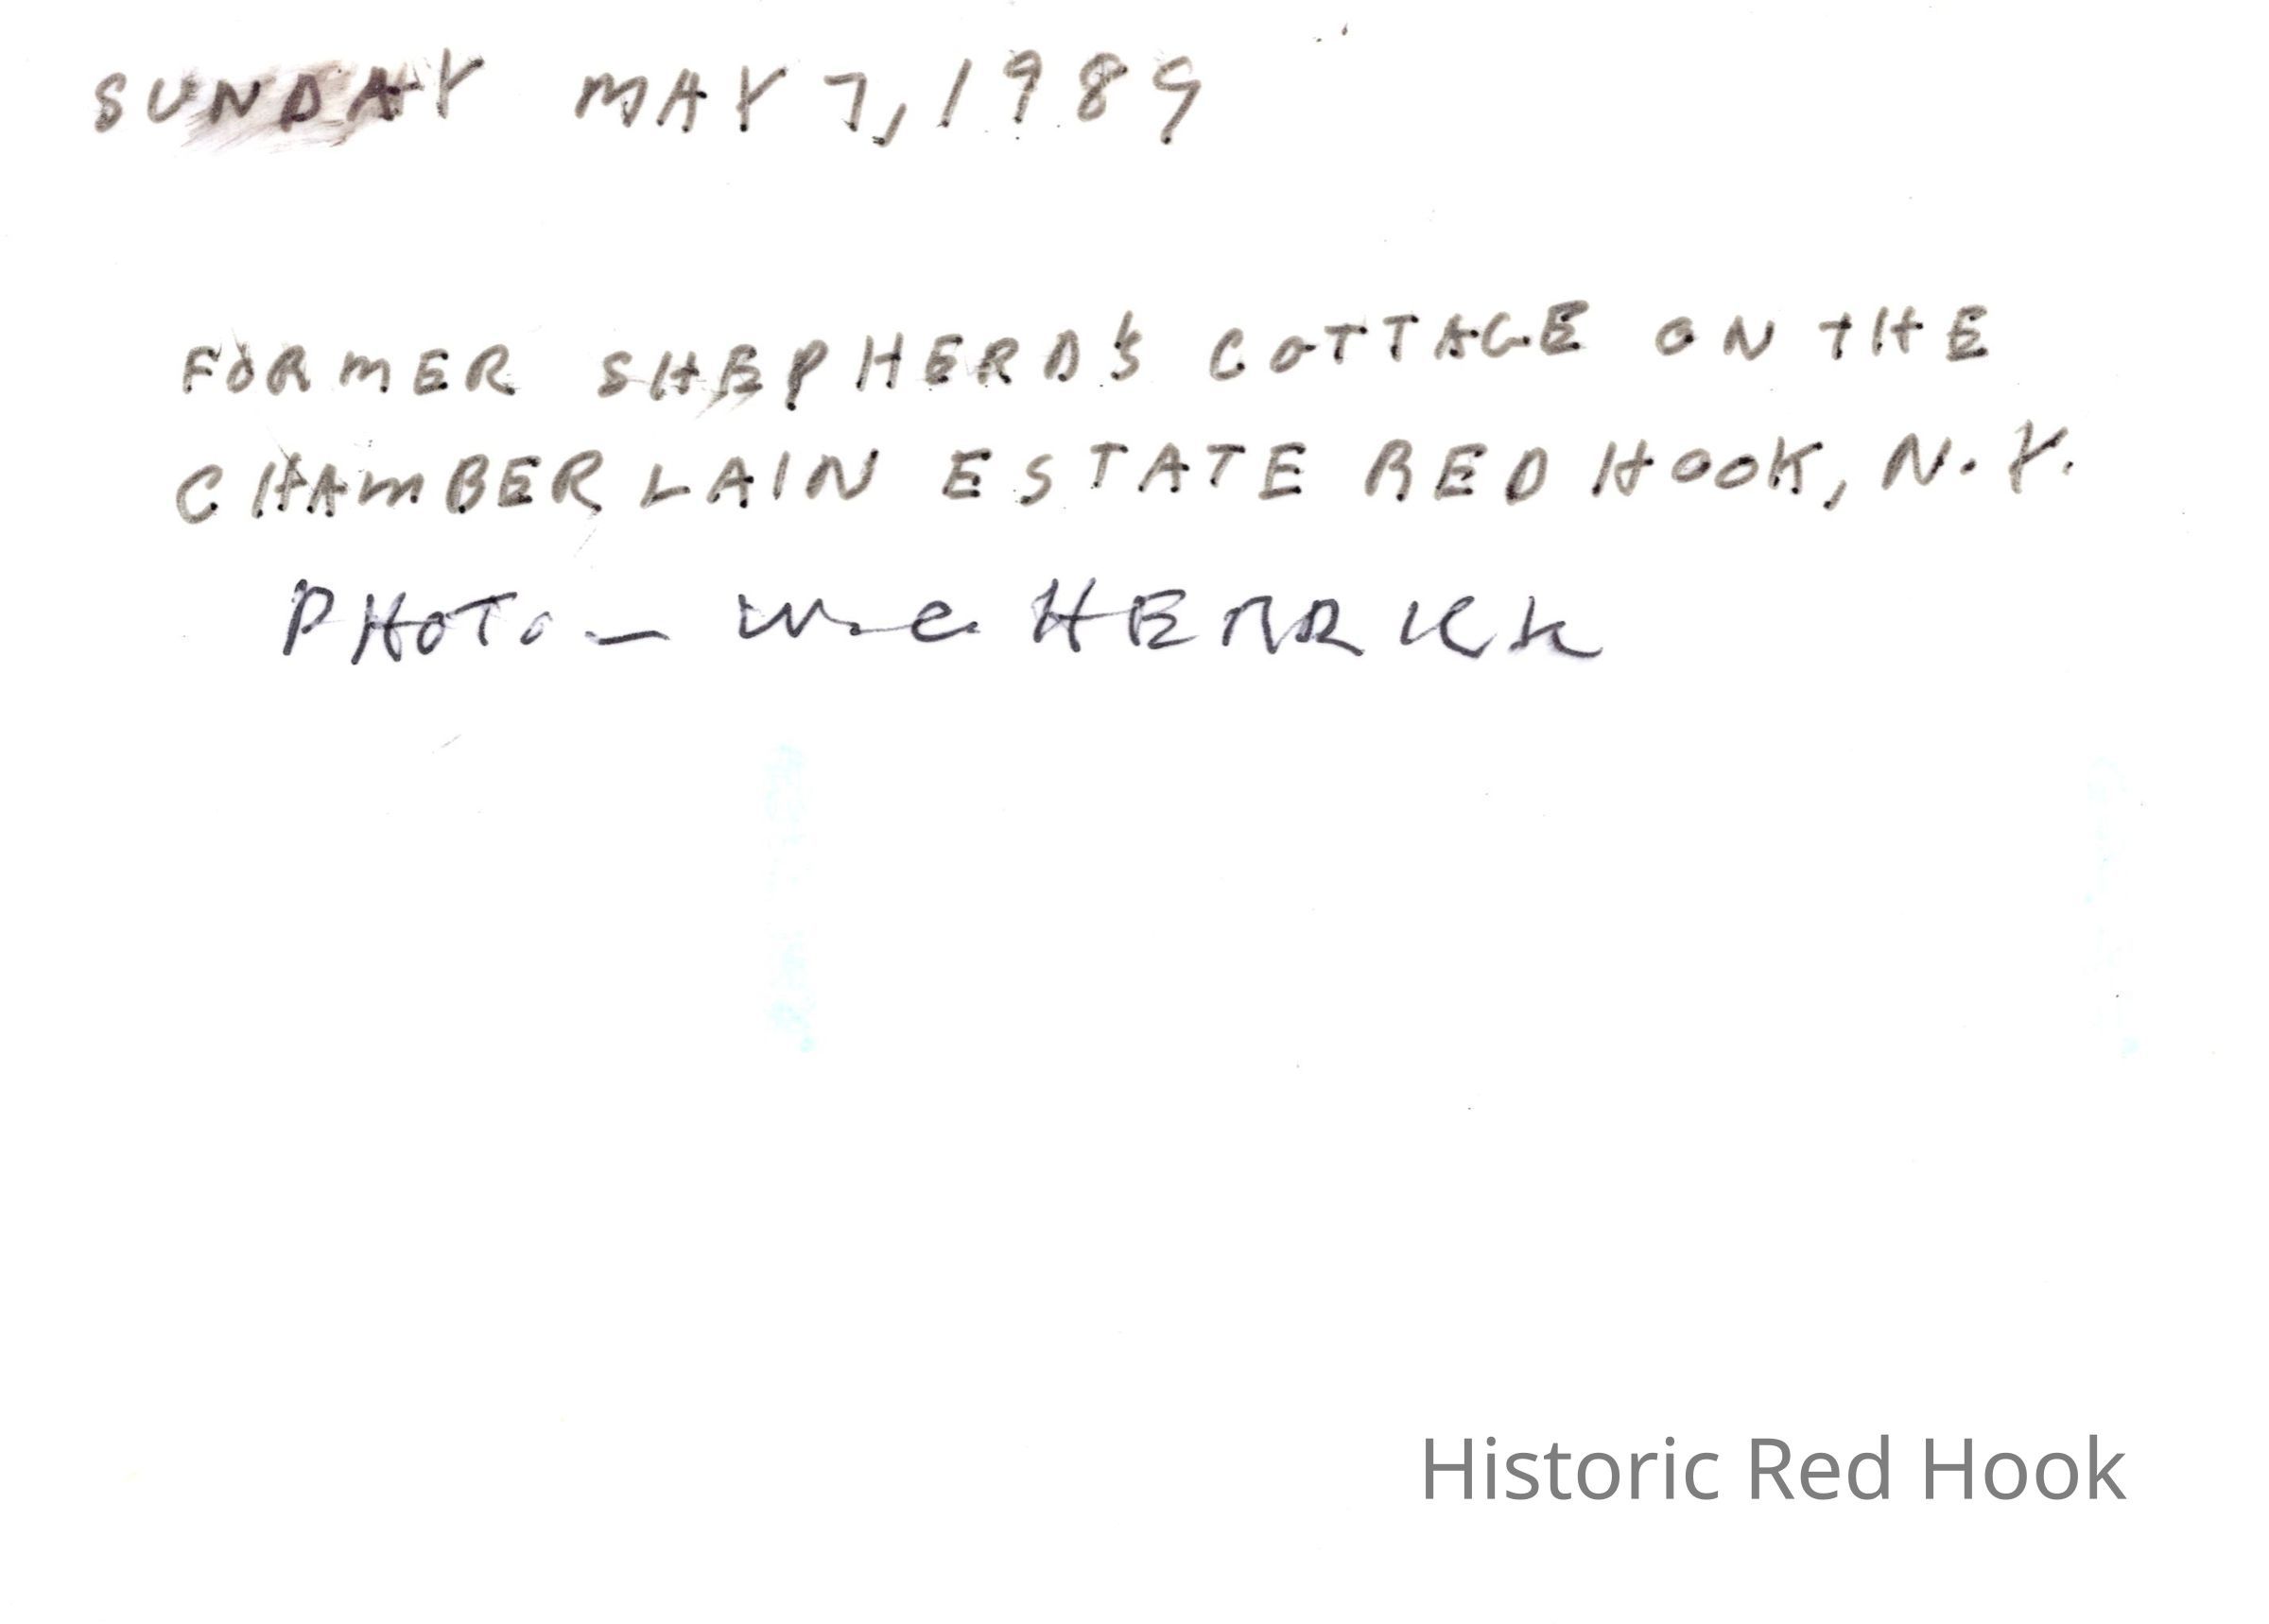 SUNDAY MAY 7, 1989
FORMER SHEPHERD'S COTTAGE ON THE
CHAMBERLAIN ESTATE RED HOOK, N.Y.
PHOTO — W.C. HERRICK
Historic Red Hook